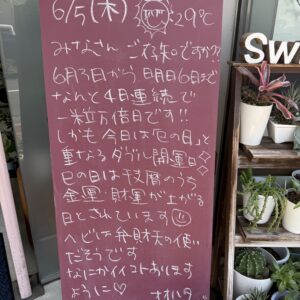 6/5(木) 29℃
みなさん ご存知ですか?!
6月3日から 明日6日まで
なんと4日連続で
一粒万倍日です!!
しかも 今日は「巳の日」と
重なるダブル開運日
巳の日は干支暦のうち
金運・財運が上がる
日とされています
ヘビは弁財天の使い
だそうです
なにかイイコトおきます
ように♡
SW